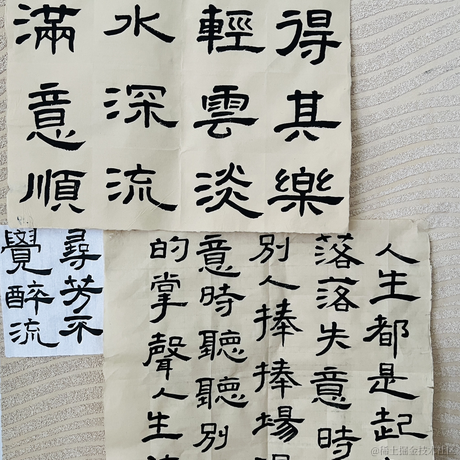 得其樂
輕雲淡
水深流
滿意順
尋芳不
覺醉流
人生都是起
落落失意時
別人捧捧場
意時聽聽別
的掌聲人生
@稀土掘金技术社区